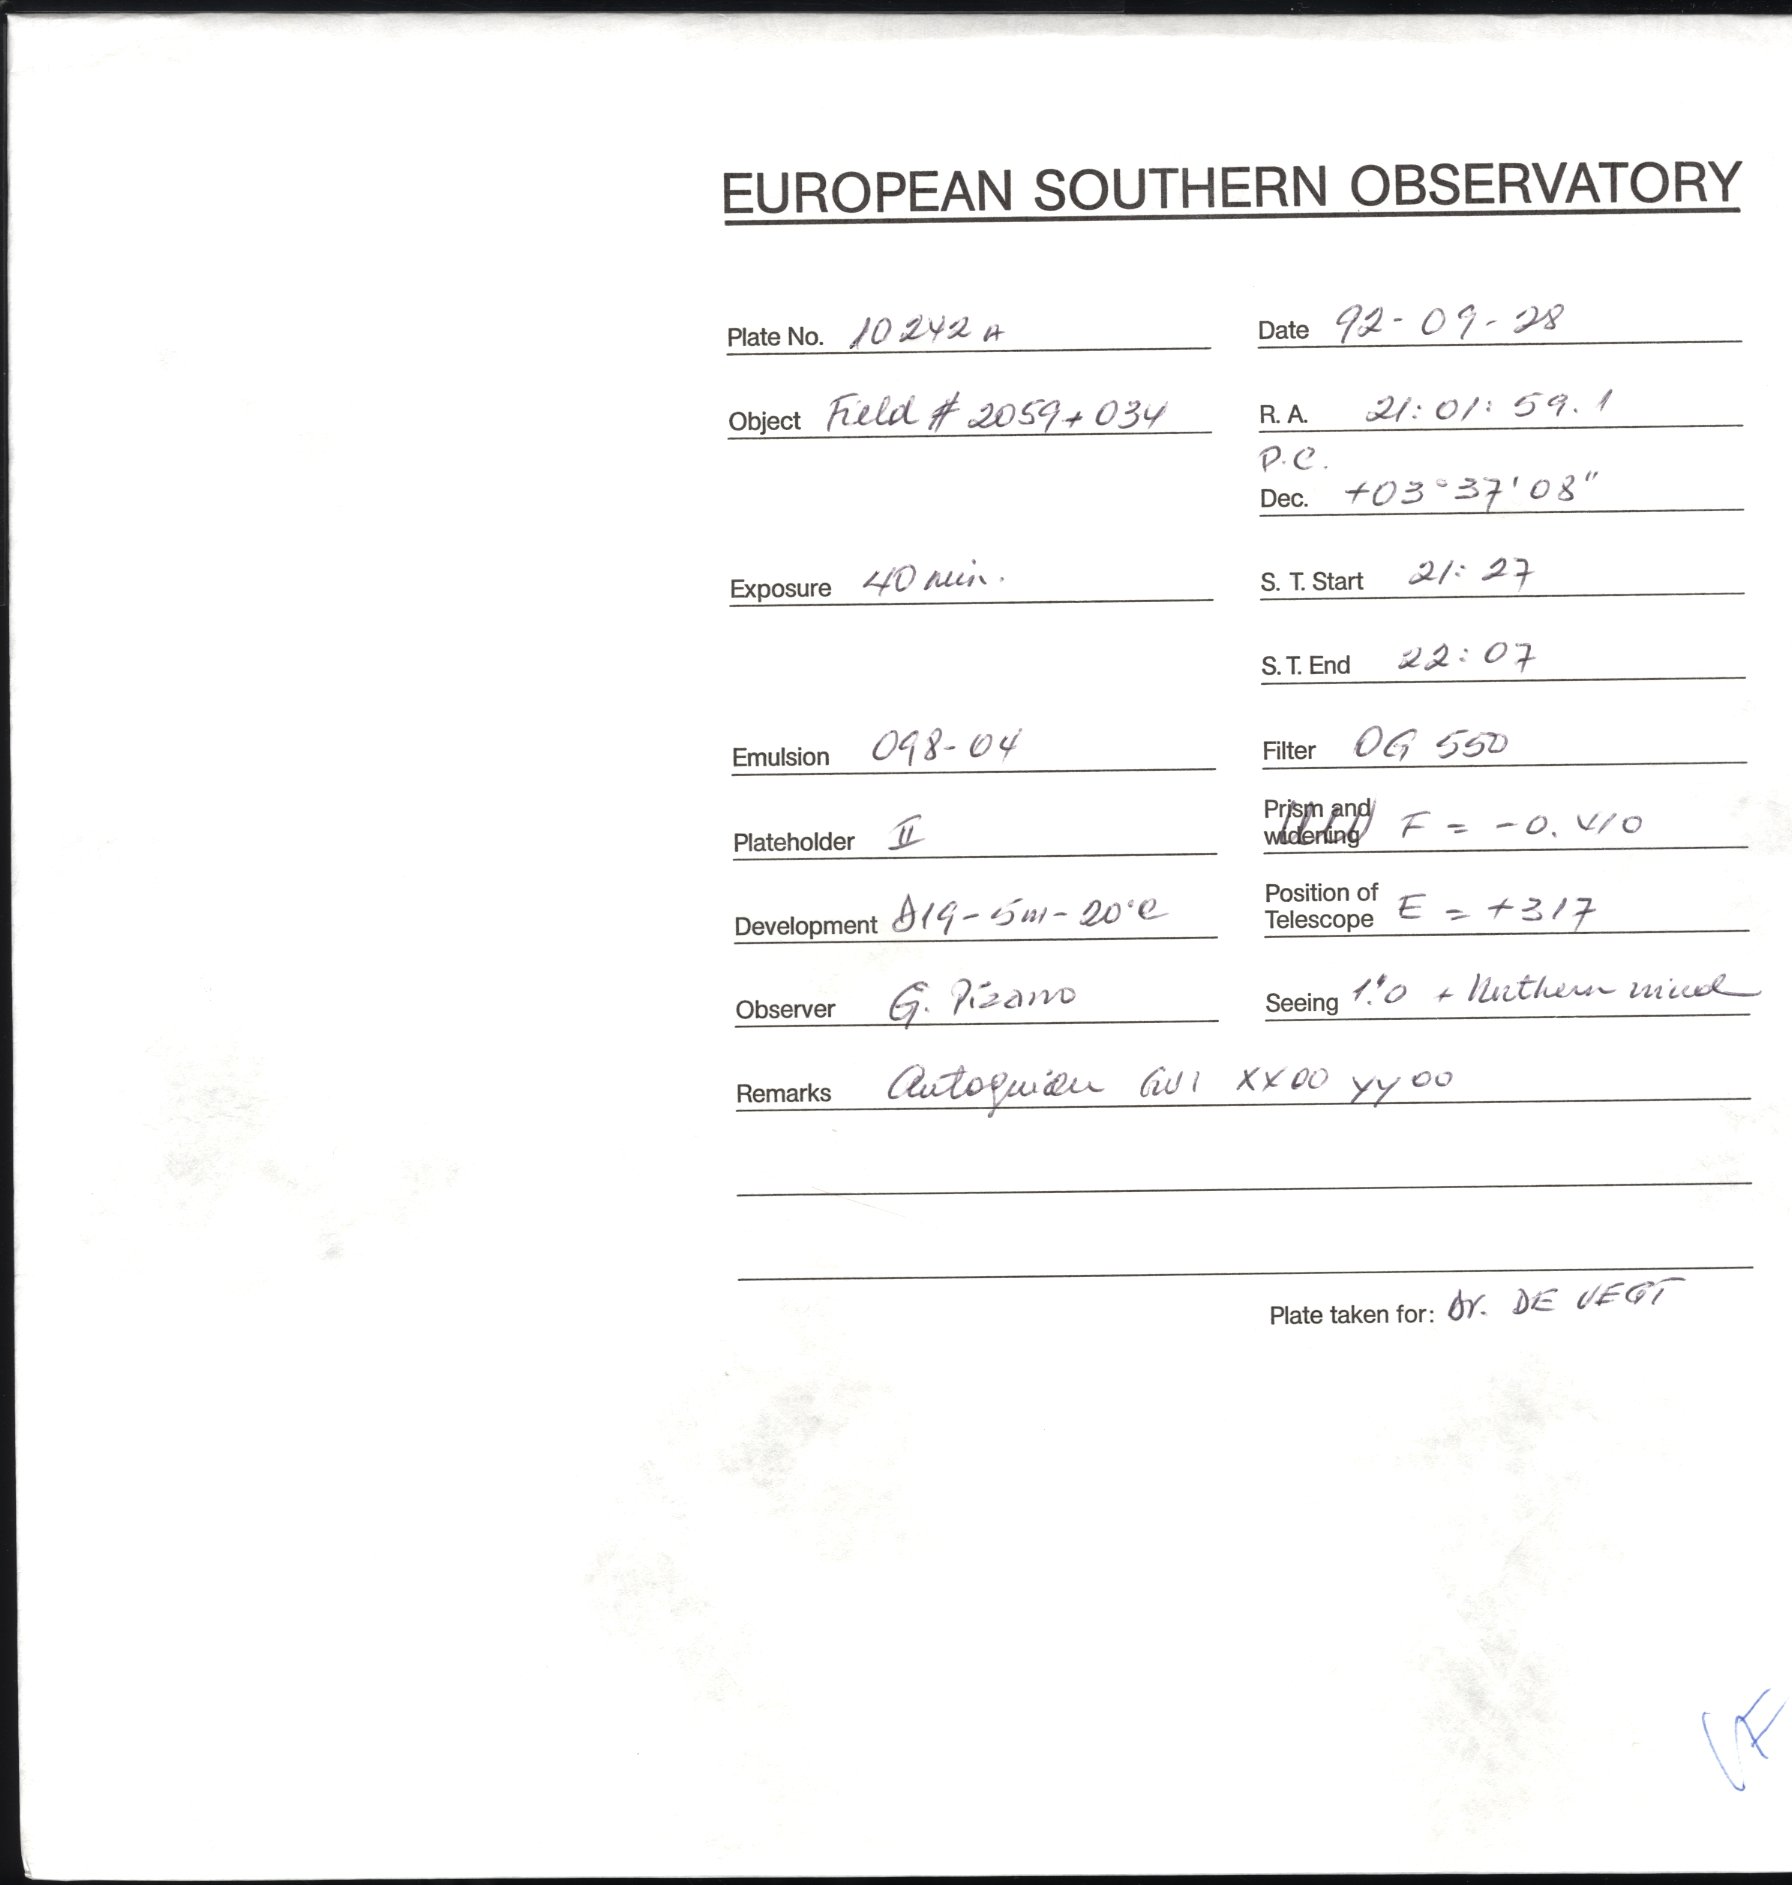 EUROPEAN SOUTHERN OBSERVATORY
Plate No. 10242 A
Date 92-09-28
Object Field # 2059+034
R. A. 21:01:59.1
P.C.
Dec. +03°37'08"
Exposure 40 min.
S. T. Start 21:27
S. T. End 22:07
Emulsion 098-04
Filter OG 550
Plateholder II
Prism and
widening F = -0.410
Development D19-5m-20°C
Position of
Telescope E = +317
Observer G. Pizarro
Seeing 1."0 + Northern wind
Remarks Autoguider XX00 YY00
Plate taken for: Dr. DE VEGT